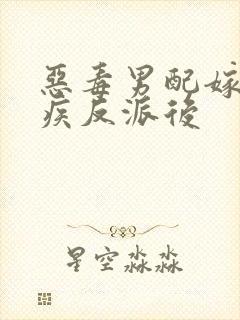 惡毒男配嫁
疾反派後
星空淼淼